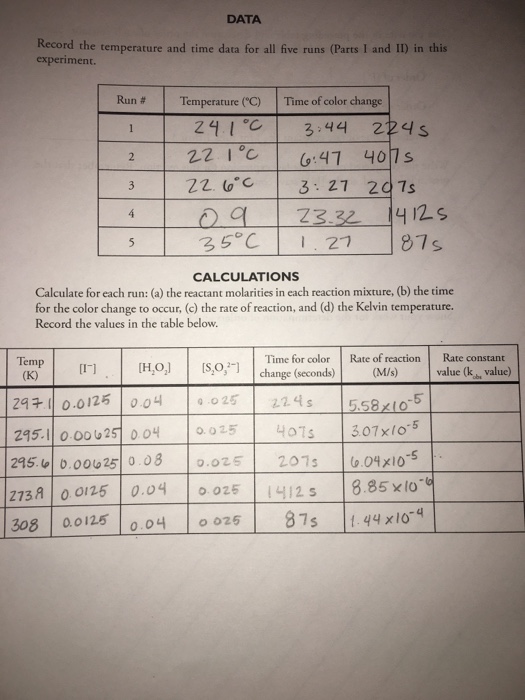 DATA
Record the temperature and time data for all five runs (Parts I and II) in this
experiment.
Run # Temperature (°C) Time of color change
1 24.1°C 3:44 224s
2 22.1°C 6:47 407s
3 22.6°C 3:27 207s
4 0.9 23.32 1412s
5 35°C 1.27 87s
CALCULATIONS
Calculate for each run: (a) the reactant molarities in each reaction mixture, (b) the time
for the color change to occur, (c) the rate of reaction, and (d) the Kelvin temperature.
Record the values in the table below.
Temp (K) [I⁻] [H₂O₂] [S₂O₃²⁻] Time for color change (seconds) Rate of reaction (M/s) Rate constant value (kobs value)
297.1 0.0125 0.04 0.025 224s 5.58x10⁻⁵
295.1 0.00625 0.04 0.025 407s 3.07x10⁻⁵
295.6 0.00625 0.08 0.025 207s 6.04x10⁻⁵
273.9 0.0125 0.04 0.025 1412s 8.85x10⁻⁶
308 0.0125 0.04 0.025 87s 1.44x10⁻⁴